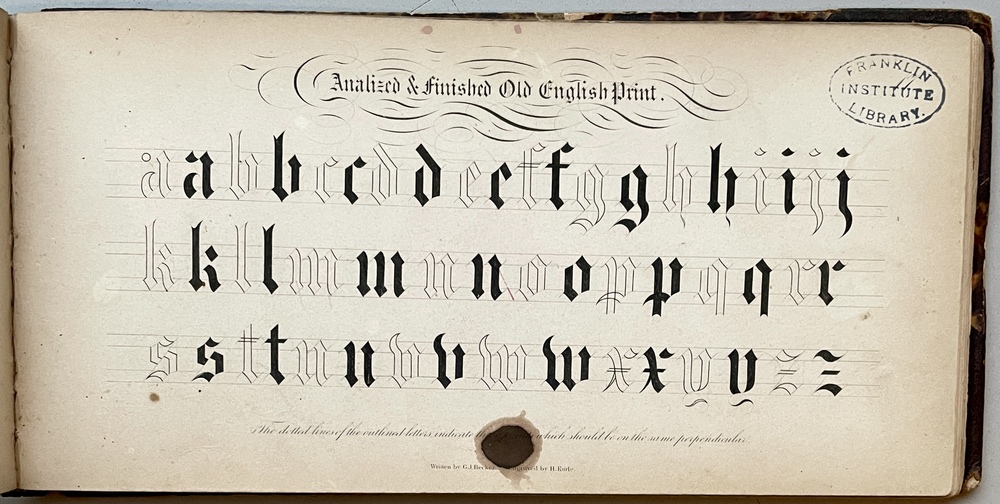 Analized & Finished Old English Print.
FRANKLIN
INSTITUTE
LIBRARY.
a a b b c c d d e e f f g g h h i i j j
k k l l m m n n o o p p q q r r
s s t t u u v v w w x x y y z z
The dotted lines of the outlined letters, indicate which should be on the same perpendicular.
Written by G.J. Becker. by H. Rorke.